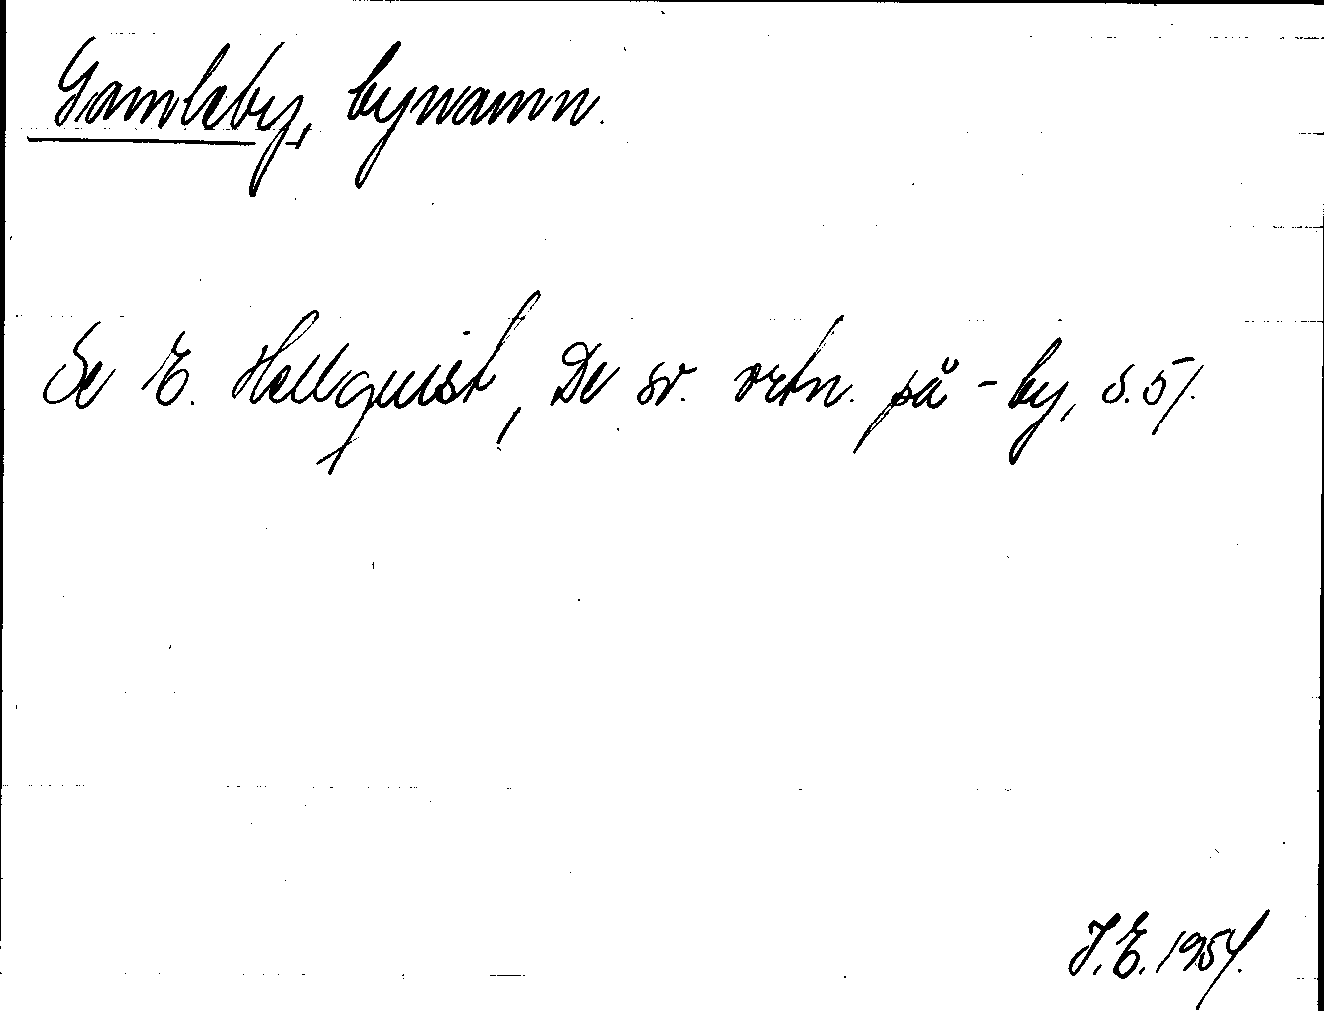 Gamleby, bynamn.
Se E. Hellquist, De sv. ortn. på -by, s. 51.
J. E. 1954.